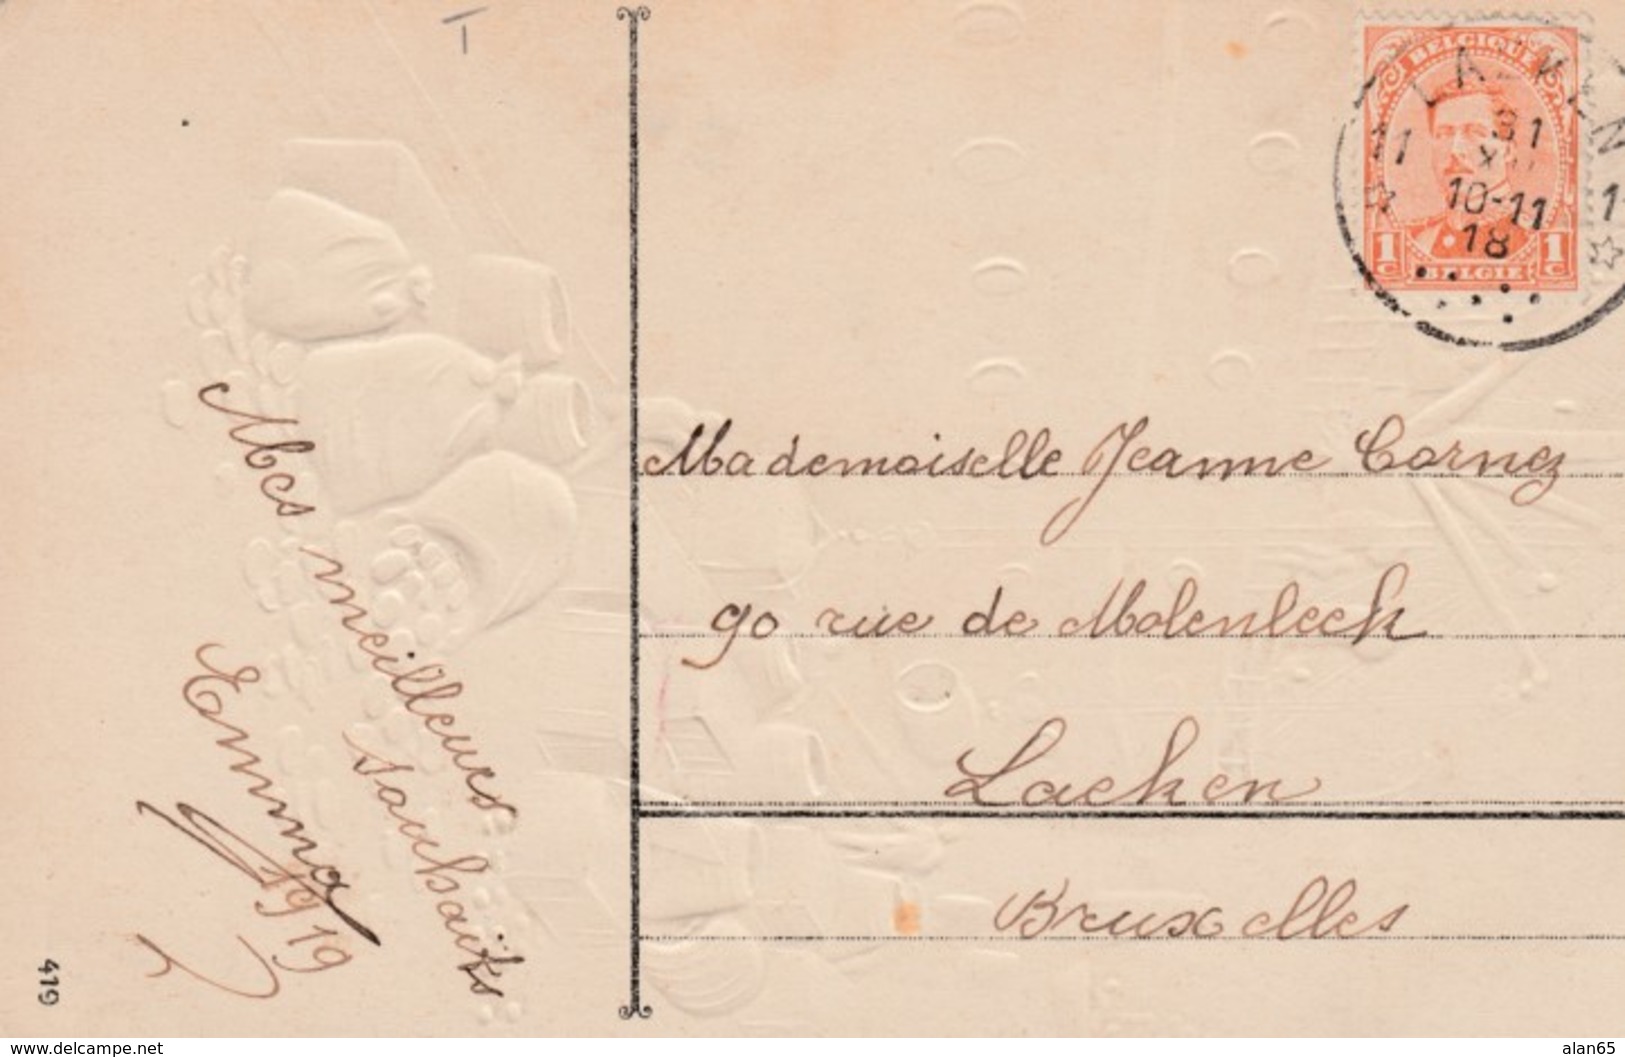 T
BELGIQUE
LAEKEN
11
31
XII
10-11
18
1
1
C
1
C
BELGIE
Mes meilleures
souhaits
Emma
1919
Mademoiselle Jeanne Cornez
90 rue de Molenbeek
Laeken
Bruxelles
419
www.delcampe.net
alan65